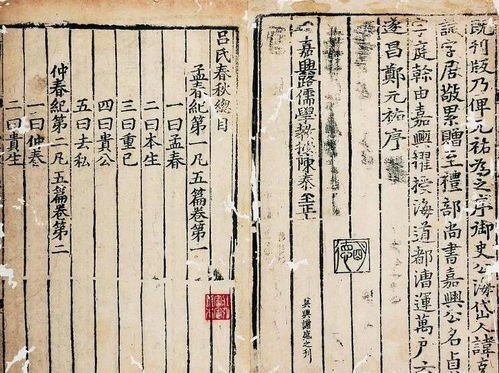 既刊版乃俾元祐為之序御史公海岱人諱克
字居敬累贈至禮部尚書嘉興公名貞
字庭幹由嘉興耀授海道都漕運萬戶
遂昌鄭元祐序
嘉興路儒學教授陳泰至正
吳興謝盛之刊
呂氏春秋總目
孟春紀第一凡五篇卷第一
一曰孟春
二曰本生
三曰重己
四曰貴公
五曰去私
仲春紀第二凡五篇卷第二
一曰仲春
二曰貴生